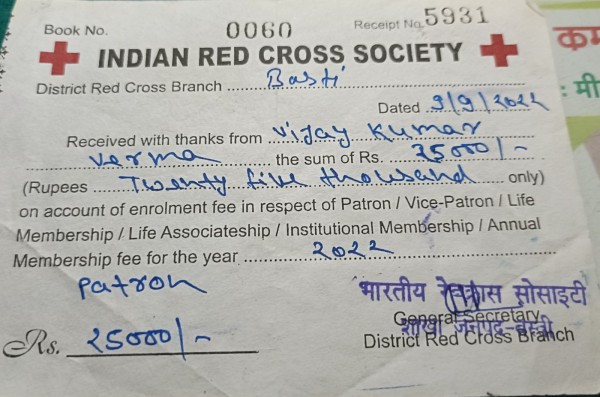 Book No. 0060 Receipt No. 5931
INDIAN RED CROSS SOCIETY
District Red Cross Branch ........ Basti
Dated 9/9/2022
Received with thanks from Vijay Kumar
Verma the sum of Rs. 25000/-
(Rupees Twenty five thousand only)
on account of enrolment fee in respect of Patron / Vice-Patron / Life
Membership / Life Associateship / Institutional Membership / Annual
Membership fee for the year 2022
Patron
भारतीय रेडक्रास सोसाइटी
General Secretary
शाखा जनपद-बस्ती
District Red Cross Branch
Rs. 25000/-